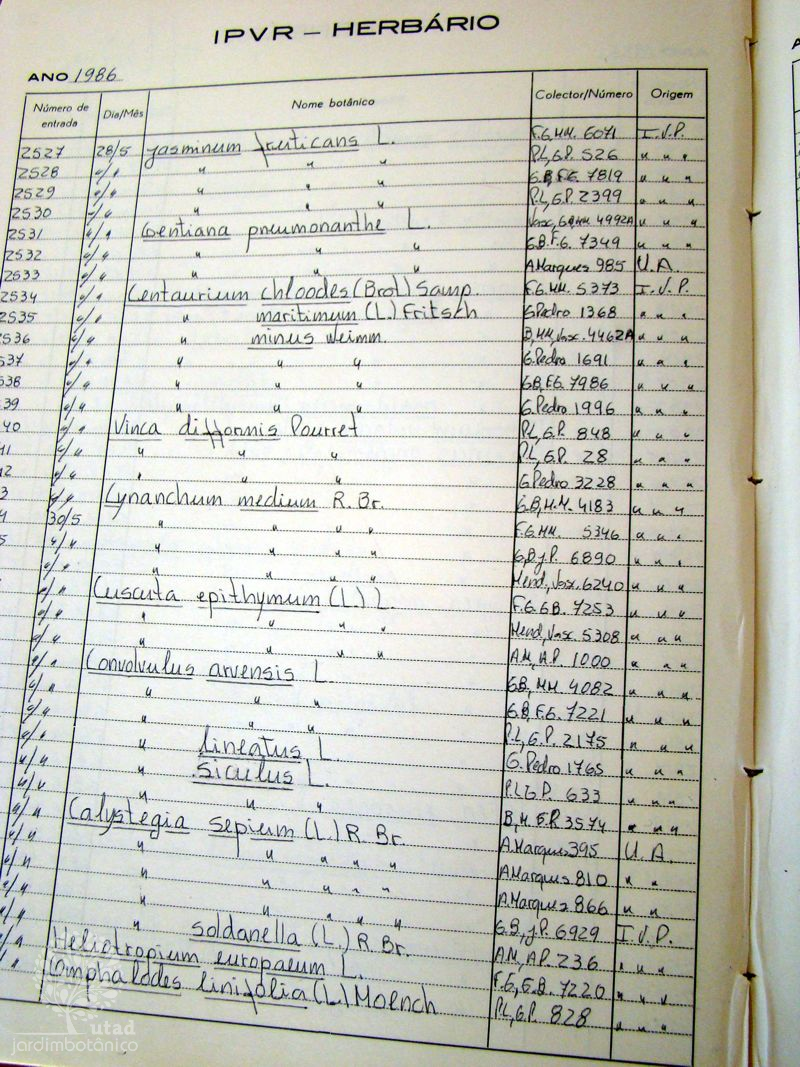 IPVR – HERBÁRIO
ANO 1986
Número de entrada Dia/Mês Nome botânico Colector/Número Origem
2527 28/5 Jasminum fruticans L. F.G,M.M. 6071 I.V.P.
2528 " / " " " " P.L,G.P. 526 " " "
2529 " / " " " " G.B,F.G. 7819 " " "
2530 " / " " " " P.L,G.P. 2399 " " "
2531 " / " Gentiana pneumonanthe L. Vasc.,G.B,M.M. 4992A " " "
2532 " / " " " " G.B.F.G. 7349 " " "
2533 " / " " " " A.Marques 985 U.A.
2534 " / " Centaurium chloodes (Brot) Samp. F.G,M.M. 5373 I.V.P.
2535 " / " " maritimum (L.) Fritsch G.Pedro 1368 " " "
2536 " / " " minus Weimm. B,MM,Vasc. 4462A " " "
537 " / " " " " G.Pedro 1691 " " "
538 " / " " " " G.B,F.G. 7986 " " "
39 " / " " " " G.Pedro 1996 " " "
40 " / " Vinca difformis Pourret P.L,G.P. 848 " " "
41 " / " " " " P.L,G.P. 28 " " "
42 " / " " " " G.Pedro 3228 " " "
3 " / " Cynanchum medium R. Br. G.B,M.M. 4183 " " "
4 30/5 " " " " F.G.MM. 5346 " " "
5 " / " " " " " G.B,J.P. 6890 " " "
" / " " " " " Mend.,Vasc. 6240 " " "
" / " Cuscuta epithymum (L.) L. F.G.G.B. 7253 " " "
" / " " " " " Mend,Vasc. 5308 " " "
" / " " " " " A.M,A.P. 1000 " " "
" / " Convolvulus arvensis L. G.B, MM. 4082 " " "
" / " " " " G.B,F.G. 7221 " " "
" / " " " " P.L,G.P. 2175 " " "
" / " " lineatus L. G.Pedro 1765 " " "
" / " " siculus L. P.L G.P. 633 " " "
" / " " " " B,M.G.P. 3574 " " "
" / " Calystegia sepium (L.) R. Br. A.Marques 395 U.A.
" / " " " " " " A.Marques 810 " "
" / " " " " " " A.Marques 866 " "
" / " " " " " " G.B,J.P. 6929 I.V.P.
" / " " soldanella (L.) R. Br. A.M,A.P. 236 " " "
" / " Heliotropium europaeum L. F.G,G.B. 7220 " " "
" Omphalodes linifolia (L.) Moench P.L,G.P. 828 " " "
utad
jardimbotânico